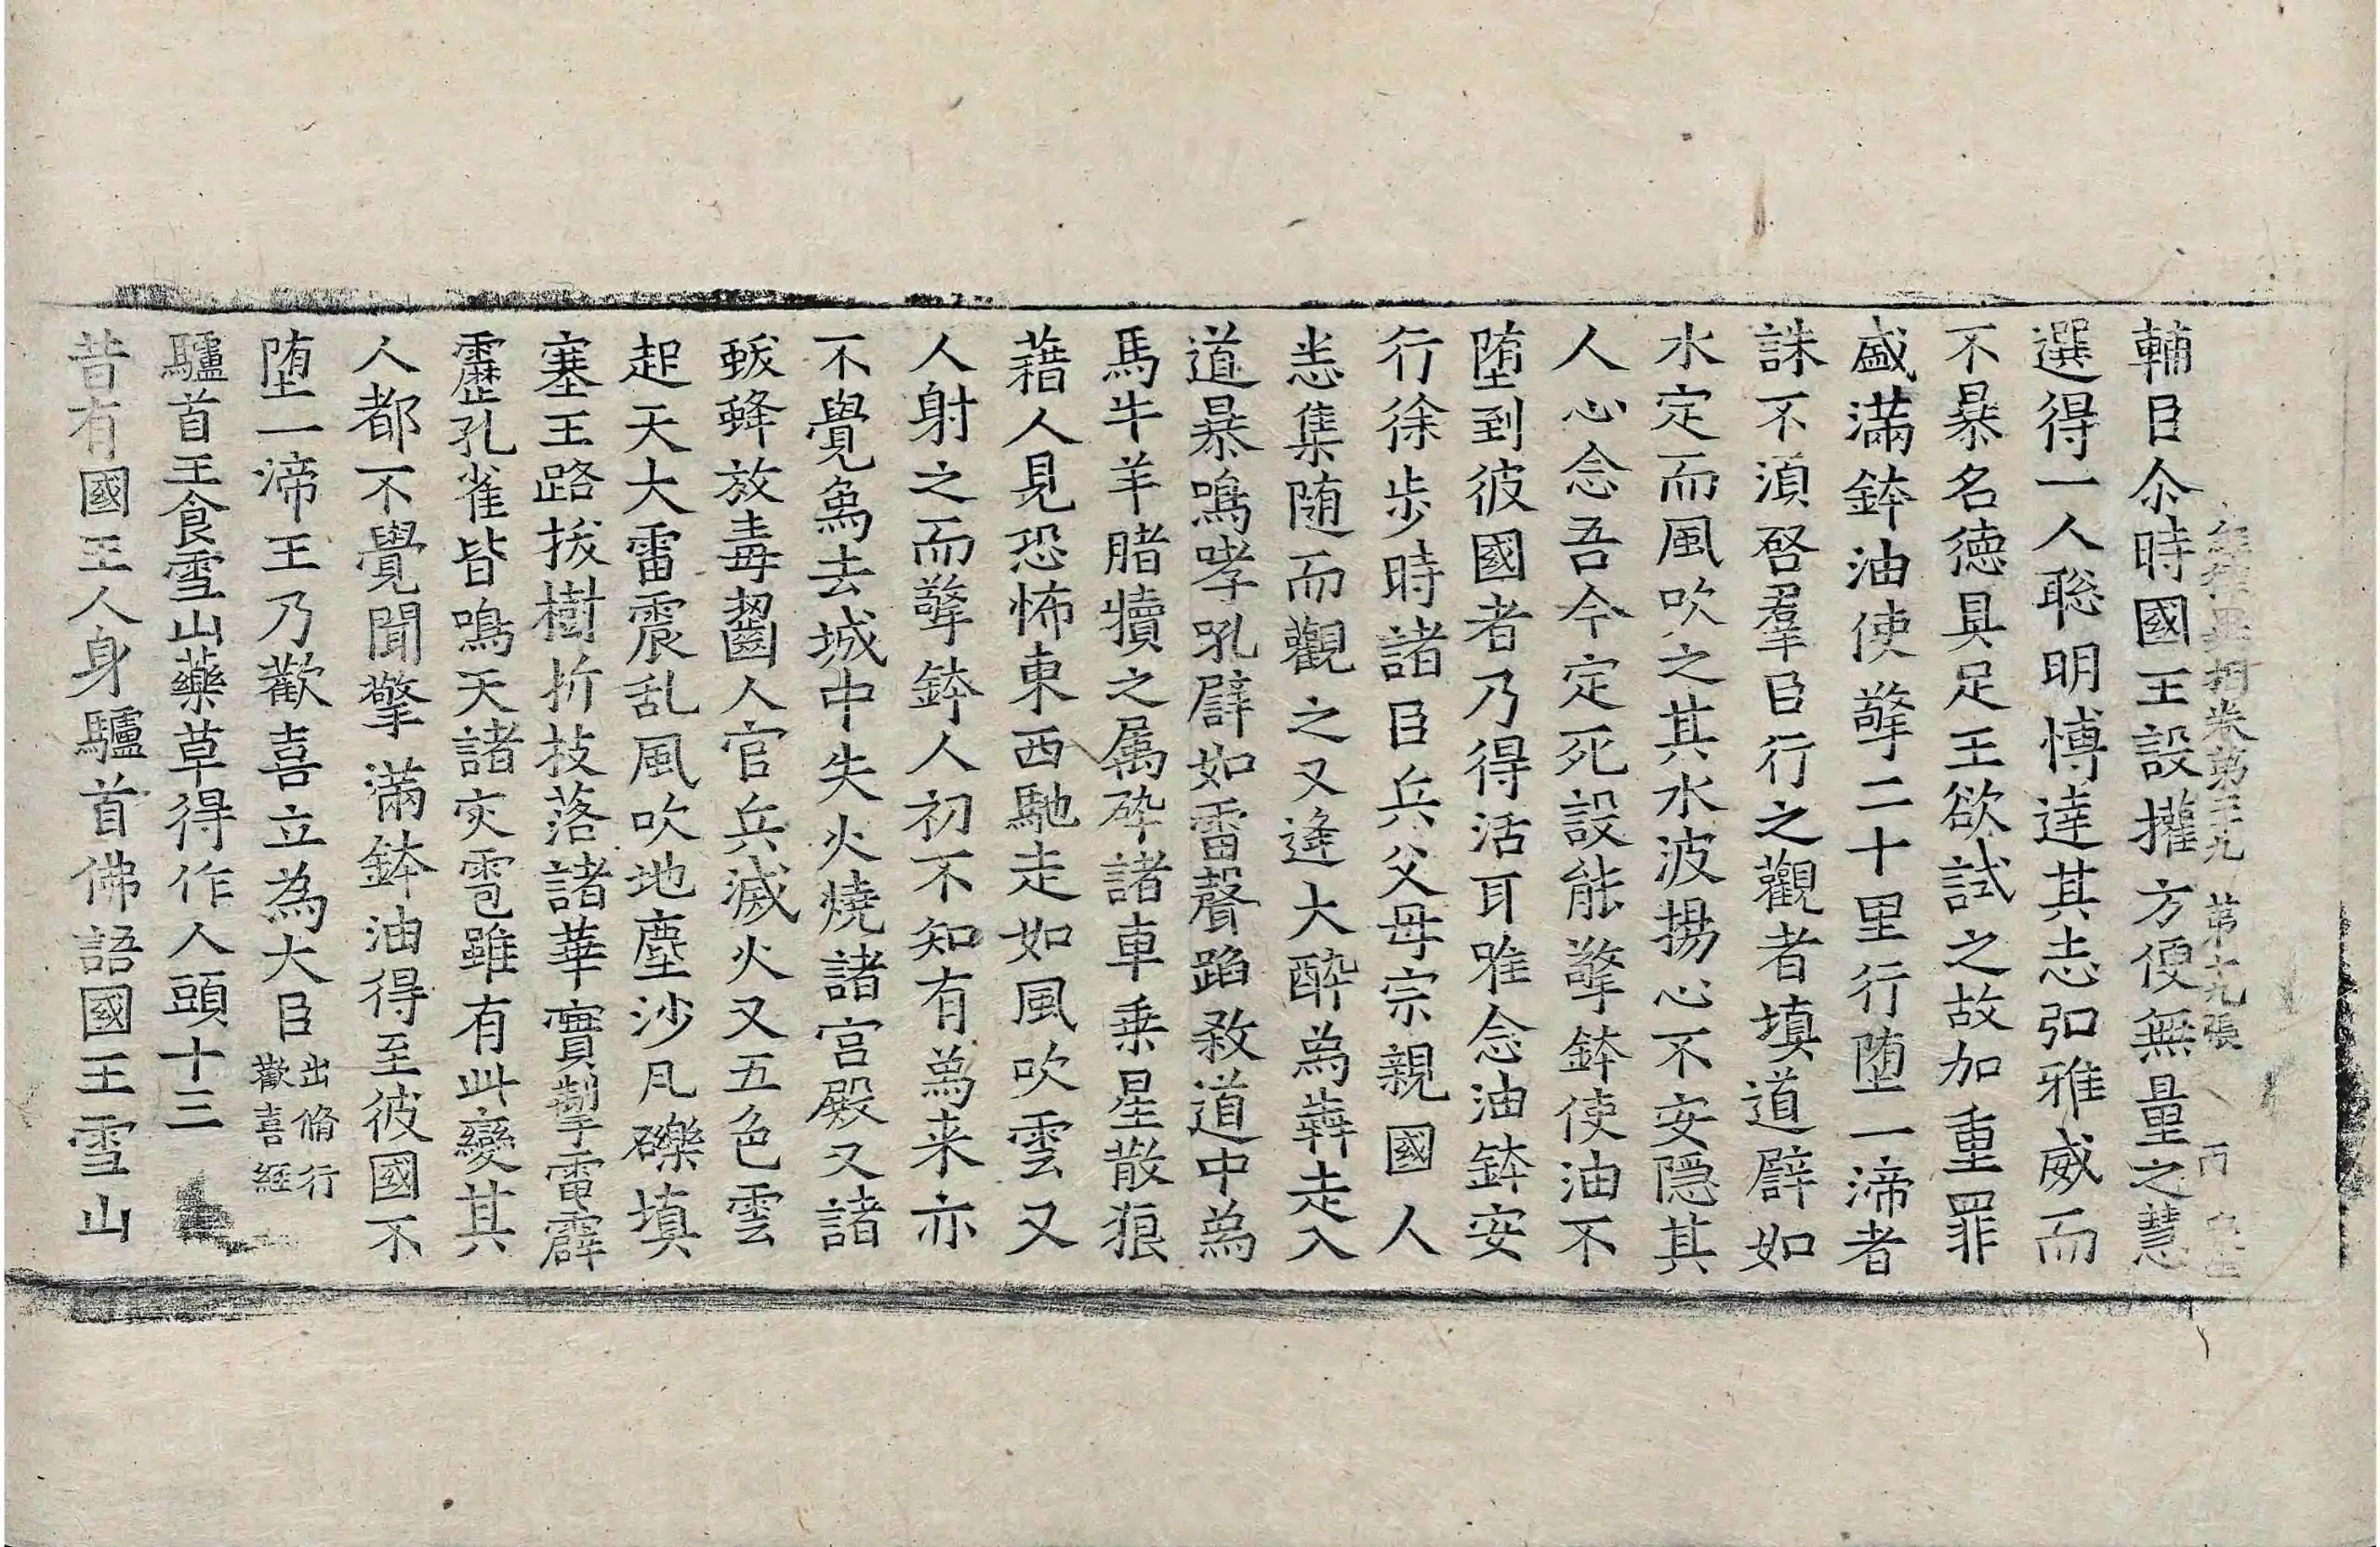 經律異相卷第二九 第十九張 丙
輔臣尒時國王設權方便無量之慧
選得一人聡明博達其志弘雅威而
不暴名德具足王欲試之故加重罪
盛滿鉢油使擎二十里行堕一渧者
誅不湏啓羣臣行之觀者填道辟如
水定而風吹之其水波揚心不安隱其
人心念吾今定死設能擎鉢使油不
堕到彼國者乃得活耳唯念油鉢安
行徐步時諸臣兵父母宗親國人
恙集随而觀之又逢大醉為犇走入
道暴鳴哮吼辟如雷聲蹈殺道中為
馬牛羊賭犢之属碎諸車乗星散狼
藉人見恐怖東西馳走如風吹雲又
人射之而擎鉢人初不知有為来亦
不覺為去城中失火燒諸宮殿又諸
蝮蜂放毒齧人官兵滅火又五色雲
起天大雷震乱風吹地塵沙凡礫填
塞王路拔樹折技落諸華實掣電霹
靂孔雀皆鳴天諸灾雹雖有此變其
人都不覺聞擎滿鉢油得至彼國不
堕一渧王乃歡喜立為大臣 出脩行歡喜經
驢首王食雪山藥草得作人頭十三
昔有國王人身驢首佛語國王雪山